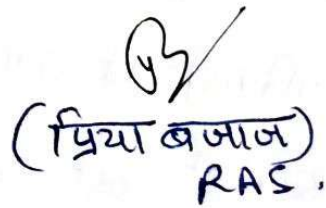 (प्रिया बजाज)
RAS.